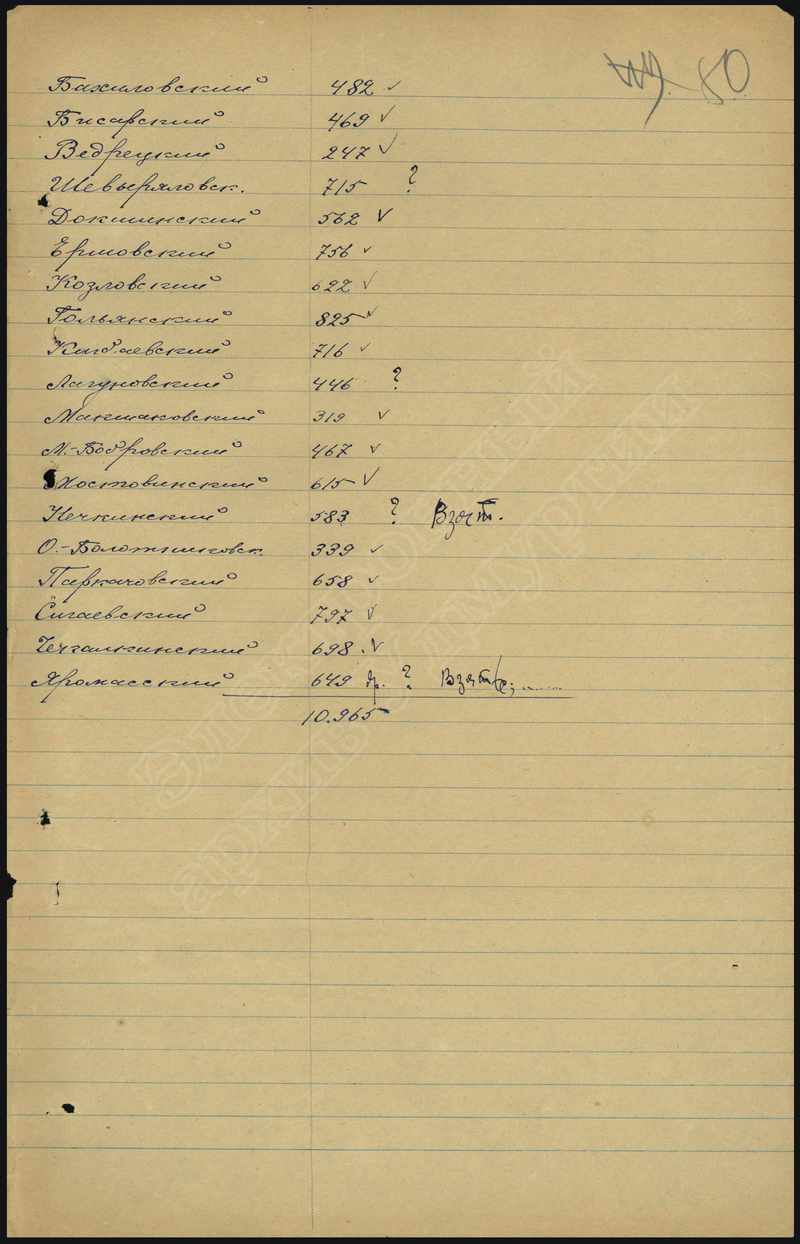 80
Бахиловский 482 ✓
Бисарский 469 ✓
Ведрецкий 247 ✓
Шевыряловск. 715 ?
Докшинский 562 ✓
Ермовский 756 ✓
Козловский 622 ✓
Гольянский 825 ✓
716 ✓
Лагуновский 446 ?
Макшаковский 319 ✓
М.-Бодровский 467 ✓
Мостовинский 615 ✓
Нечкинский 583 ? Взят.
О.-Болотниковск. 339 ✓
Паркачовский 658 ✓
Сигаевский 797 ✓
Чегалкинский 698 . ✓
Яромасский 649 ?
10.965